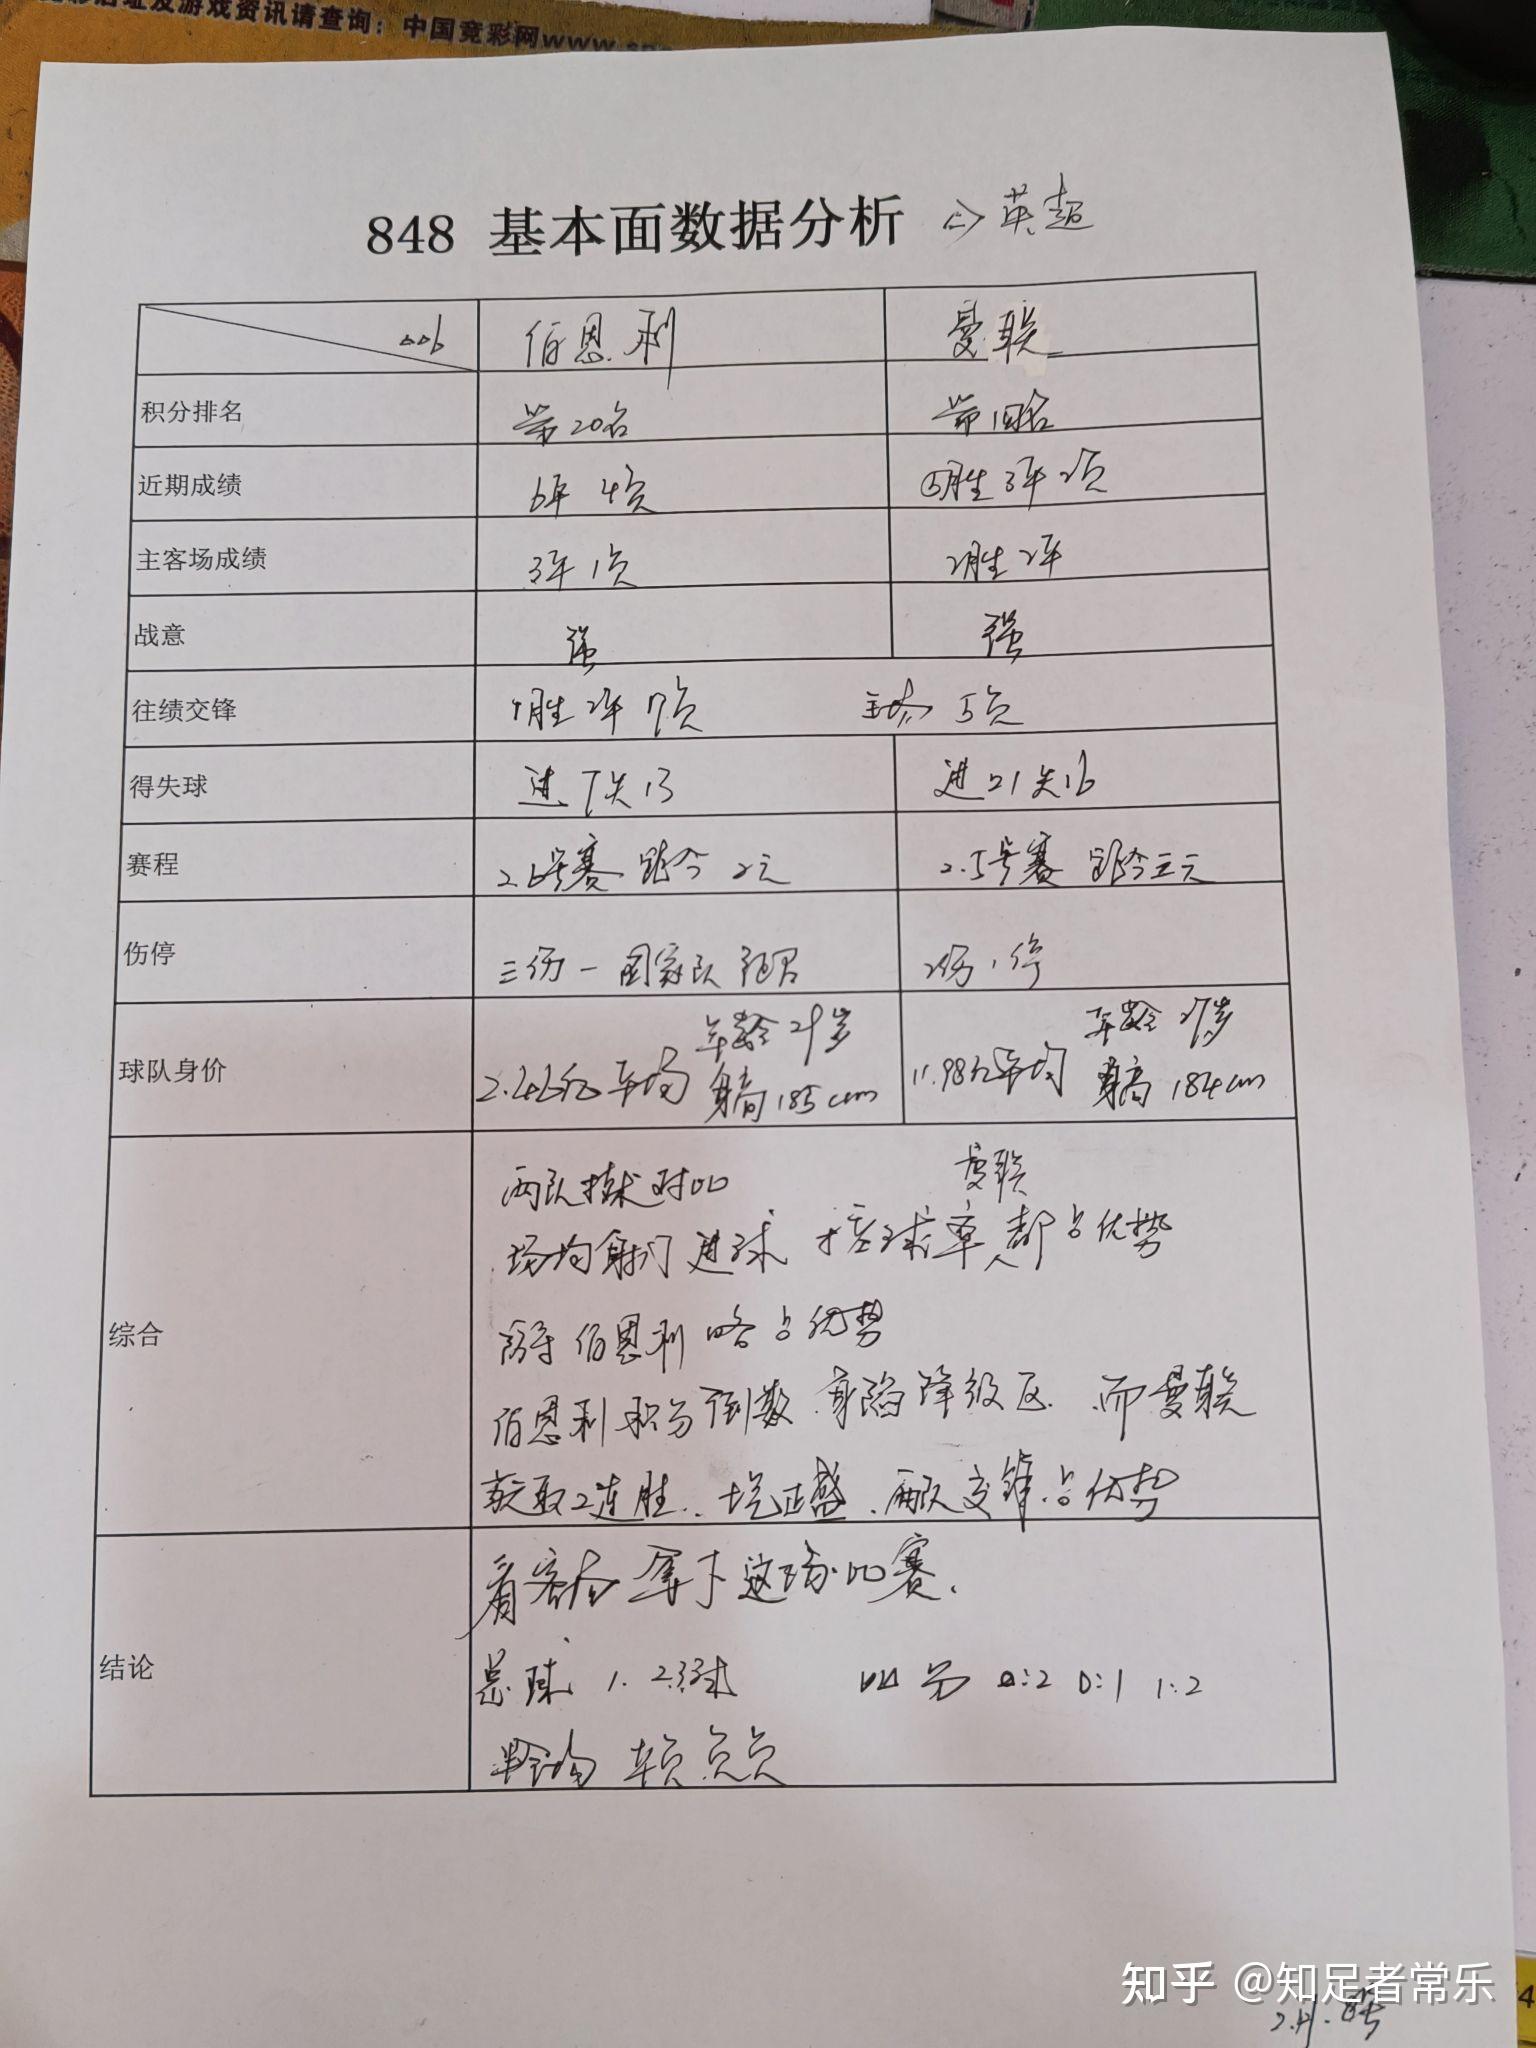 游戏资讯请查询：中国竞彩网www.
848 基本面数据分析 => 英超
006 伯恩利 曼联
积分排名 第20名 第4名
近期成绩 6平4负 5胜3平2负
主客场成绩 3平1负 2胜2平
战意 强 强
往绩交锋 1胜2平7负 主场5负
得失球 进7失13 进21失16
赛程 2.6号赛 距今2天 2.5号赛 距今三天
伤停 三伤一国家队征召 2伤1停
球队身价 2.46亿 平均 年龄29岁 身高185cm 11.98亿 平均 年龄27岁 身高184cm
综合
两队技术对比
场均射门 进球 控球率 曼联都占优势
防守 伯恩利略占优势
伯恩利积分倒数 身陷降级区. 而曼联
获取2连胜. 士气正盛. 两队交锋占优势
结论
看客队拿下这场比赛.
总球 1. 2.3球 比分 0:2 0:1 1:2
半全场 平负 负负
知乎 @知足者常乐
2月.8号